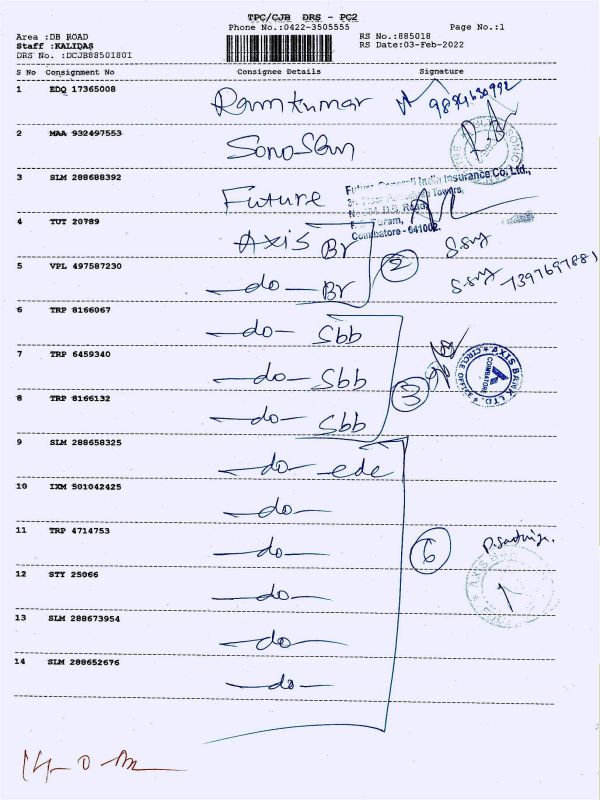 TPC/CJB DRS - PG2
Phone No.:0422-3505555
Page No.:1
Area :DB ROAD
RS No.:885018
Staff :KALIDAS
RS Date:03-Feb-2022
DRS No. :DCJB8850180I
S No Consignment No Consignee Details Signature
1 EDQ 17365008 Ramkumar
2 MAA 932497553
3 SLM 288688392 Future
Future Generali India Insurance Co. Ltd.,
Towers,
D.B. Road,
Coimbatore - 641002.
4 TUT 20789 Axis Br
2
5 VPL 497587230 -do- Br
6 TRP 8166067 -do- Sbb
7 TRP 6459340 -do- Sbb
3
AXIS BANK LTD. CIRCLE OFFICE
COIMBATORE
8 TRP 8166132 -do- Sbb
9 SLM 288658325 -do- ede
10 IXM 501042425 -do-
11 TRP 4714753 -do-
6
12 STY 25066 -do-
13 SLM 288673954 -do-
14 SLM 288652676 -do-